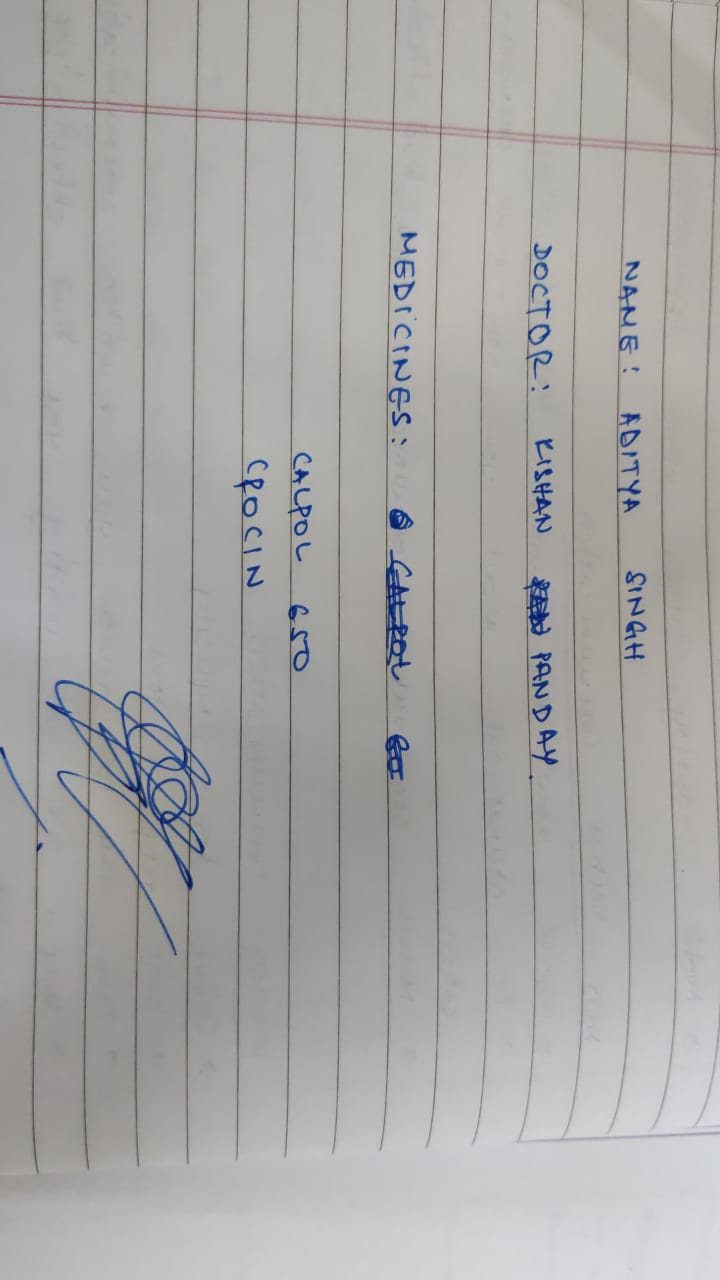 NAME: ADITYA SINGH
DOCTOR: KISHAN PANDAY.
MEDICINES:
CALPOL 650
CROCIN